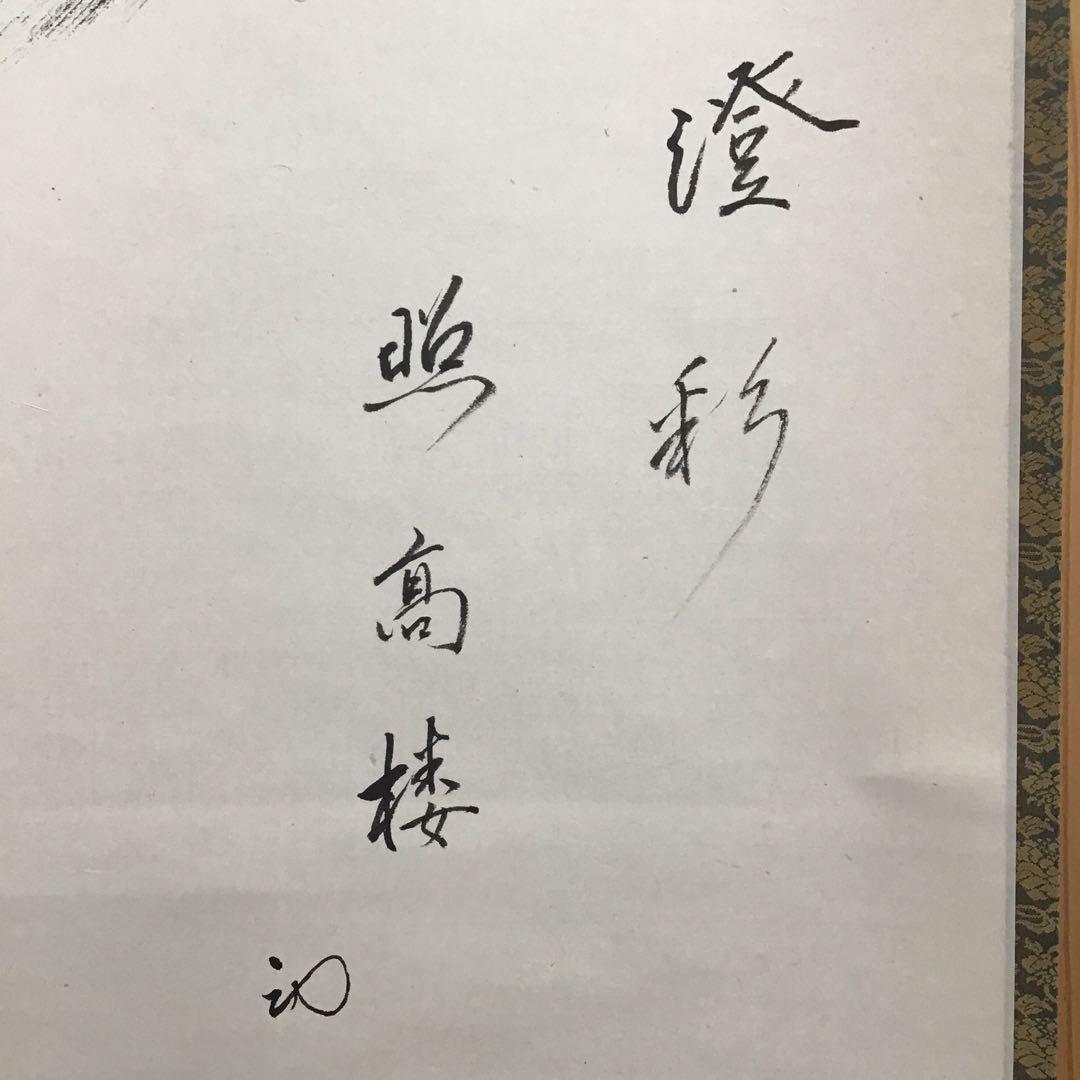 澄彩
照高楼